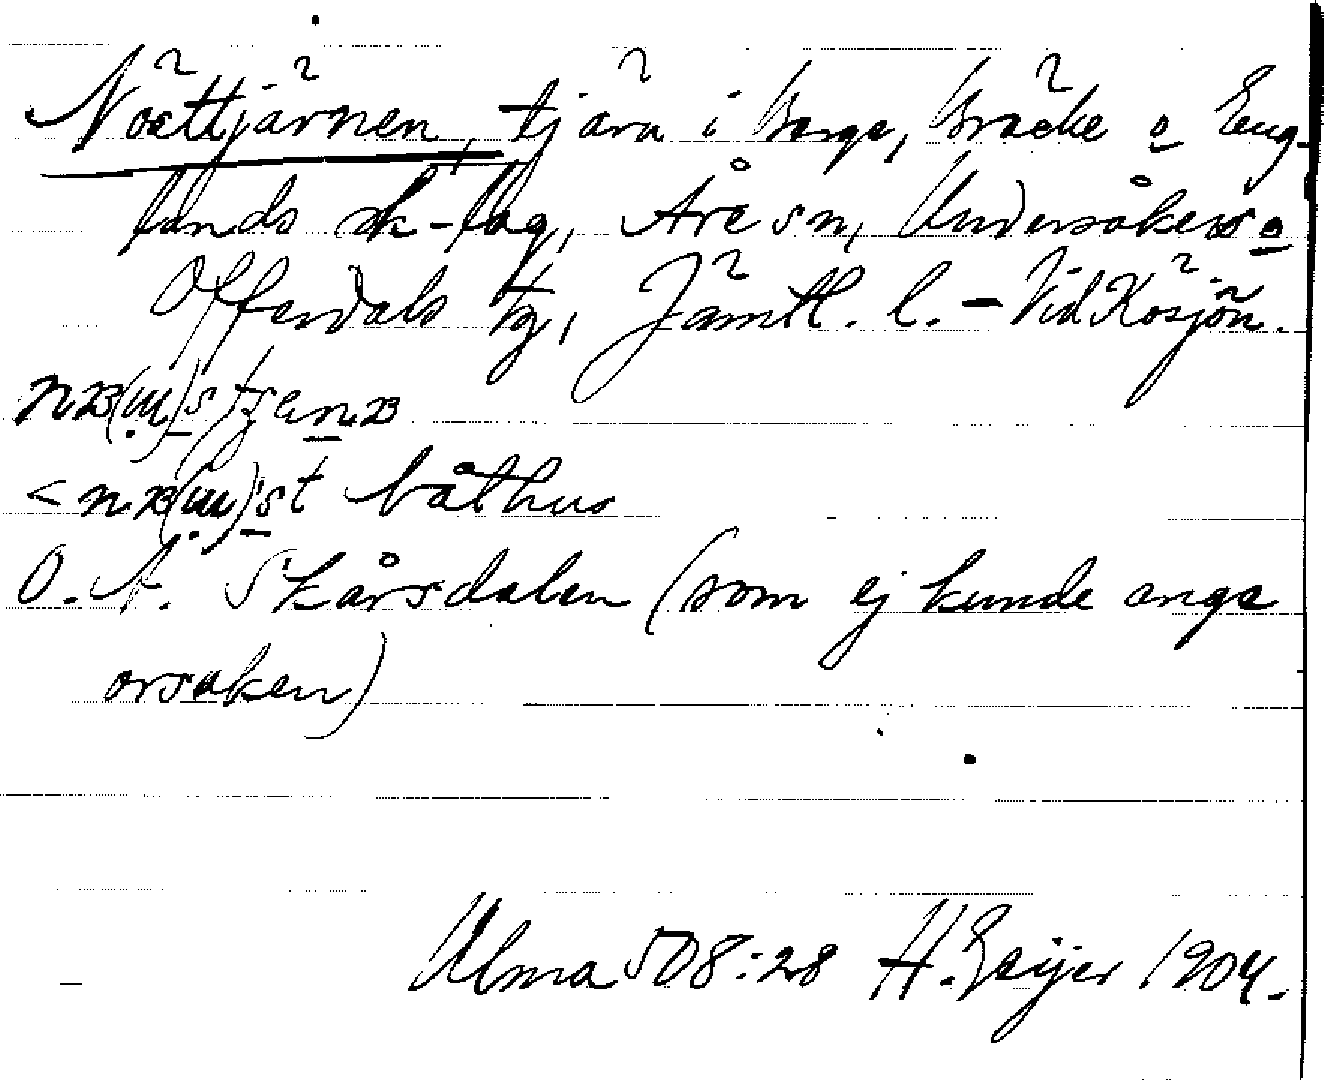 Nöættjärnen, tjärn i Berge, Bräcke o Eng-
lands sk-lag, Åre sn, Undersåkers o
Offerdals tg, Jämtl. l. – Vid Kösjön.
< båthus
O. A. Skårsdalen (som ej kunde ange
orsaken)
Ulma 508:28 H. Geijer 1904.